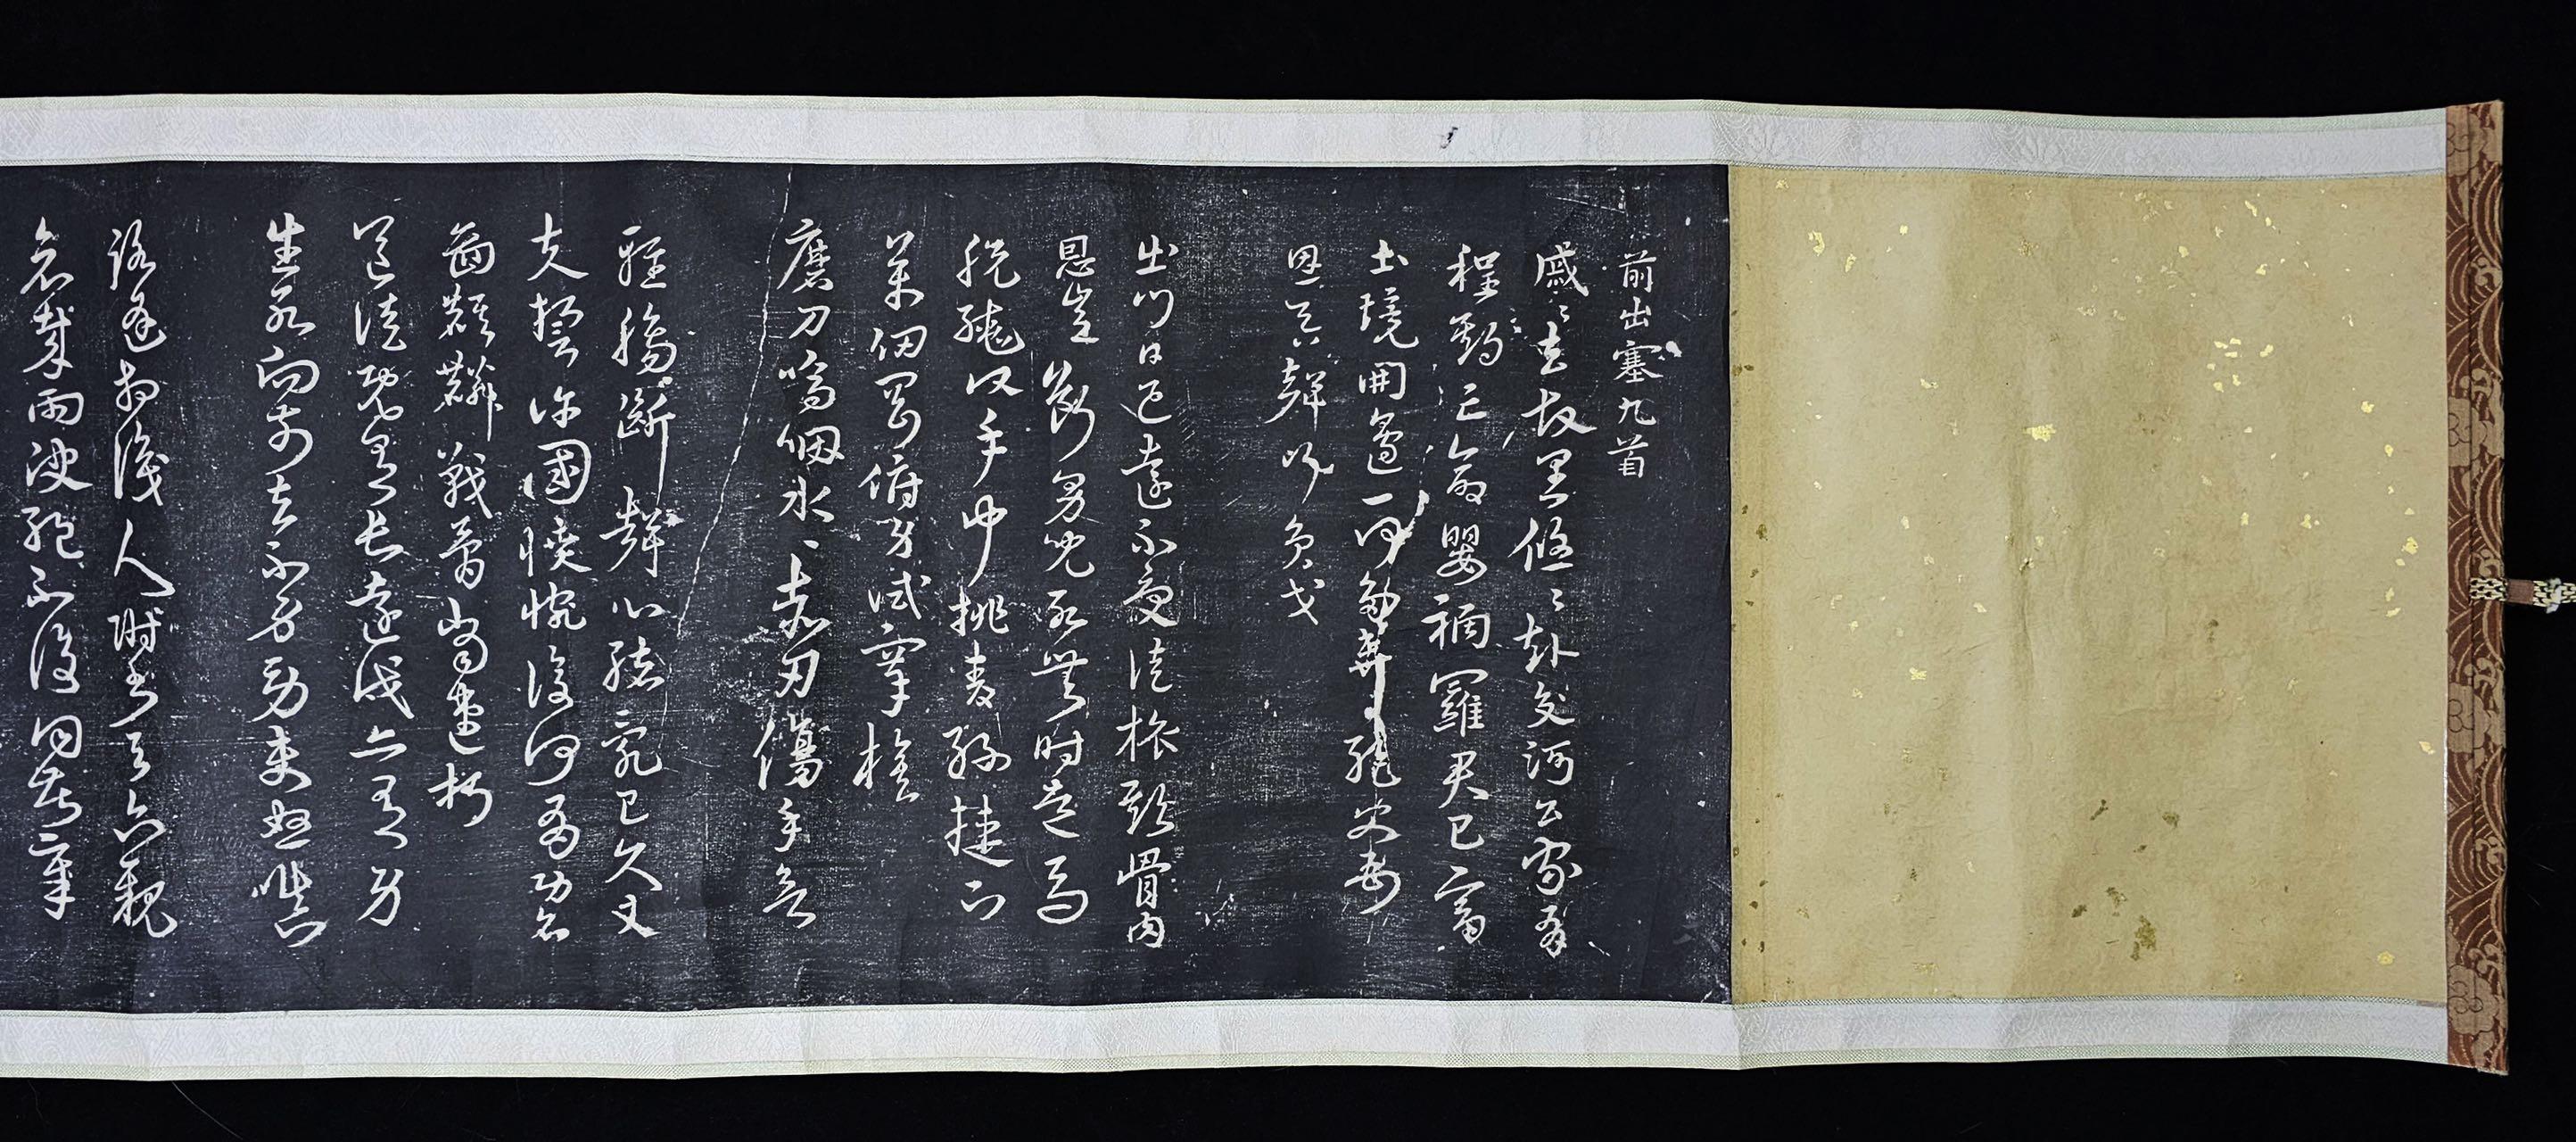 前出塞九首
戚〻去故里悠〻赴交河公家有
程期亡命嬰禍羅君已富
土境開邊一何多棄絕父母
恩吞聲行負戈
出門日已遠不受徒旅欺骨肉
恩豈斷男兒死無時走馬
脫轡頭手中挑青絲捷下
萬仞岡俯身試搴旗
磨刀嗚咽水〻赤刃傷手欲
輕腸斷聲心緒亂已久丈
夫誓許國憤惋復何有功名
圖騏驎戰骨當速朽
送徒既有長遠戍亦有身
生死向前去不勞吏怒嗔
路逢相識人附書與六親
哀哉兩決絕不復同苦辛